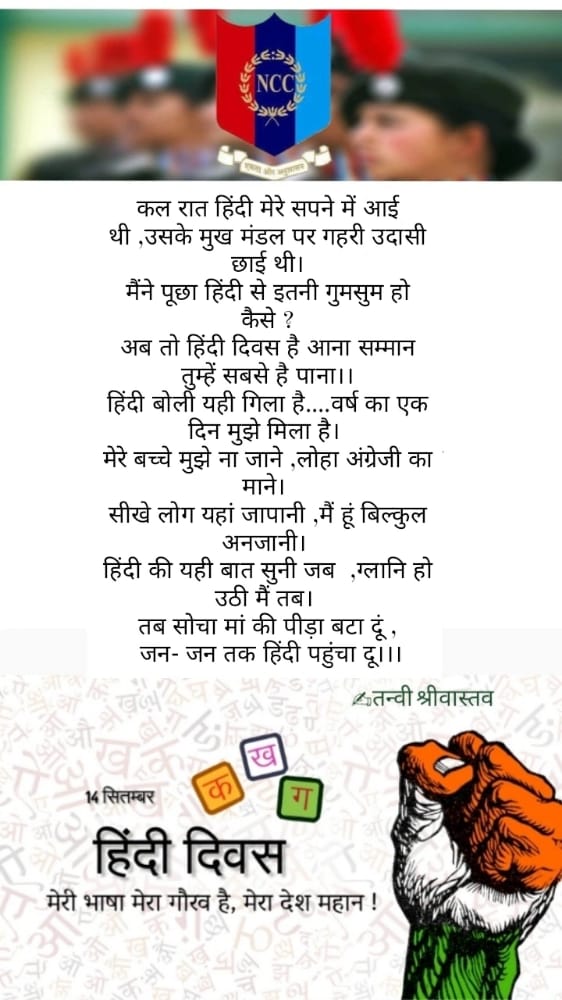 NCC
एकता और अनुशासन
कल रात हिंदी मेरे सपने में आई
थी ,उसके मुख मंडल पर गहरी उदासी
छाई थी।
मैंने पूछा हिंदी से इतनी गुमसुम हो
कैसे ?
अब तो हिंदी दिवस है आना सम्मान
तुम्हें सबसे है पाना।।
हिंदी बोली यही गिला है....वर्ष का एक
दिन मुझे मिला है।
मेरे बच्चे मुझे ना जाने ,लोहा अंग्रेजी का
माने।
सीखे लोग यहां जापानी ,मैं हूं बिल्कुल
अनजानी।
हिंदी की यही बात सुनी जब ,ग्लानि हो
उठी मैं तब।
तब सोचा मां की पीड़ा बटा दूं ,
जन- जन तक हिंदी पहुंचा दू।।।
✍तन्वी श्रीवास्तव
ख
क
ग
14 सितम्बर
हिंदी दिवस
मेरी भाषा मेरा गौरव है, मेरा देश महान !